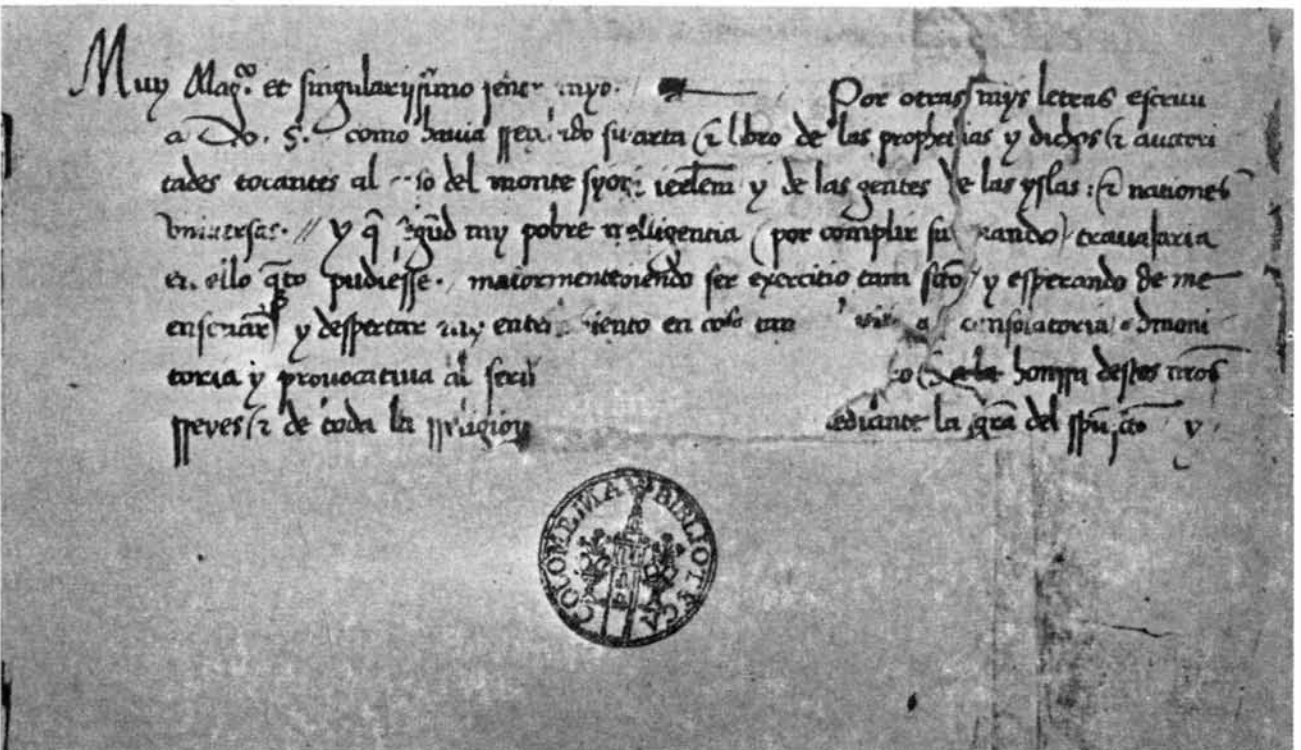 Muy Mag.co et singularissimo señor myo. Por otras mys letras escriui
a V. S. como hauia rreci ido su carta & libro de las prophecias y dichos & auctori
tades tocantes al so del monte syon: ierľem y de las gentes de las yslas: & nationes
vniuersas. // y q̃ segũd my pobre yntelligencia (por complir su mando) trauaiaria
en ello q̃to pudiesse. maiormente siendo ser exercitio tam scťo / y esperando de me
enseñar y despertar my ente iento en cosa tan consolatoria admoni
toria y prouocatiua al serui o & a la honrra destos nr̃os
rreyes & de toda la rreligion ediante la gr̃a del spũ scťo y
COLOMBINA BIBLIOTECA